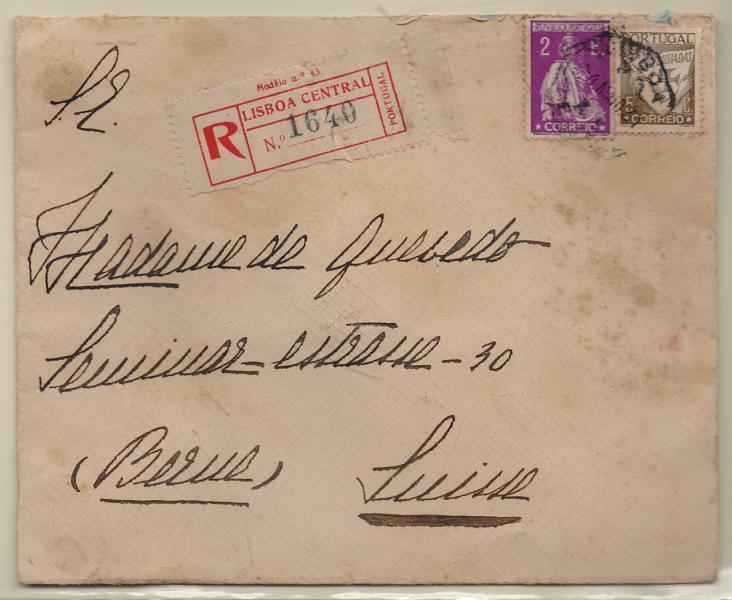 S.E.
Modêlo n.º 43
R
LISBOA CENTRAL
N.º 1640
PORTUGAL
2 E.
CORREIO
PORTUGAL
LUSIADAS
5 C.
CORREIO
Madame de Quevedo
Seminar-estrasse-30
(Berne)
Suisse